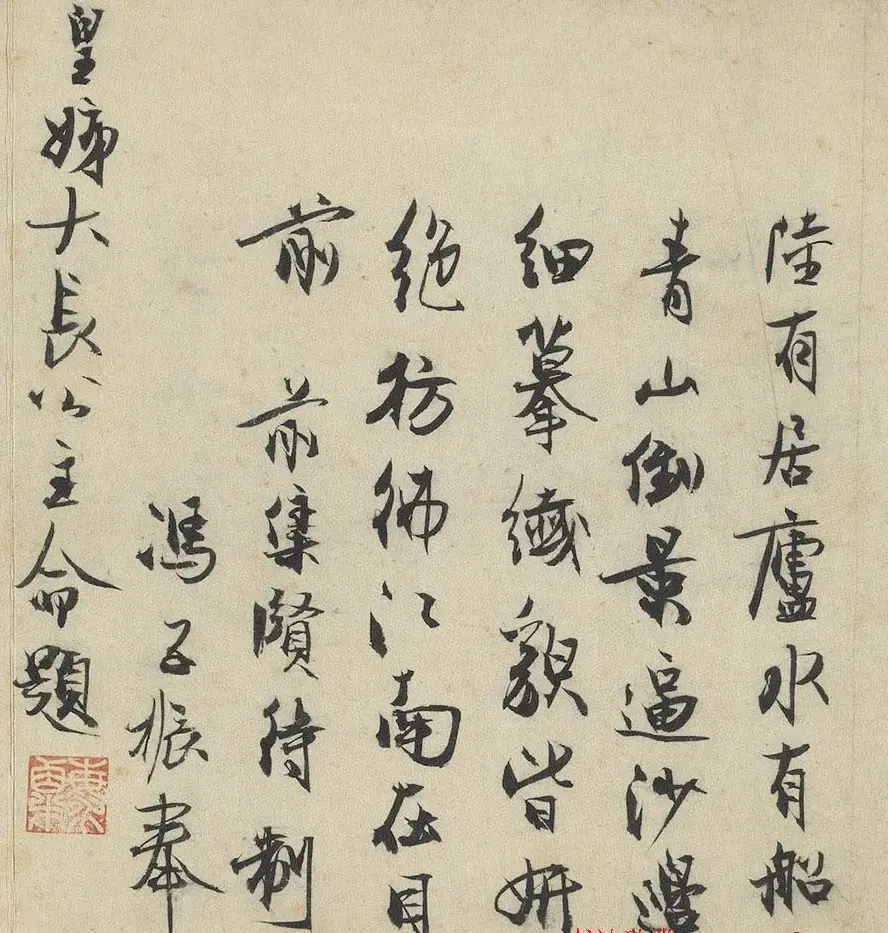 陸有居廬水有船
青山倒景逼沙邊
細摹纎貌皆妍
絶彷彿江南在目
前 前集賢待制
馮子振奉
皇姊大長公主命題